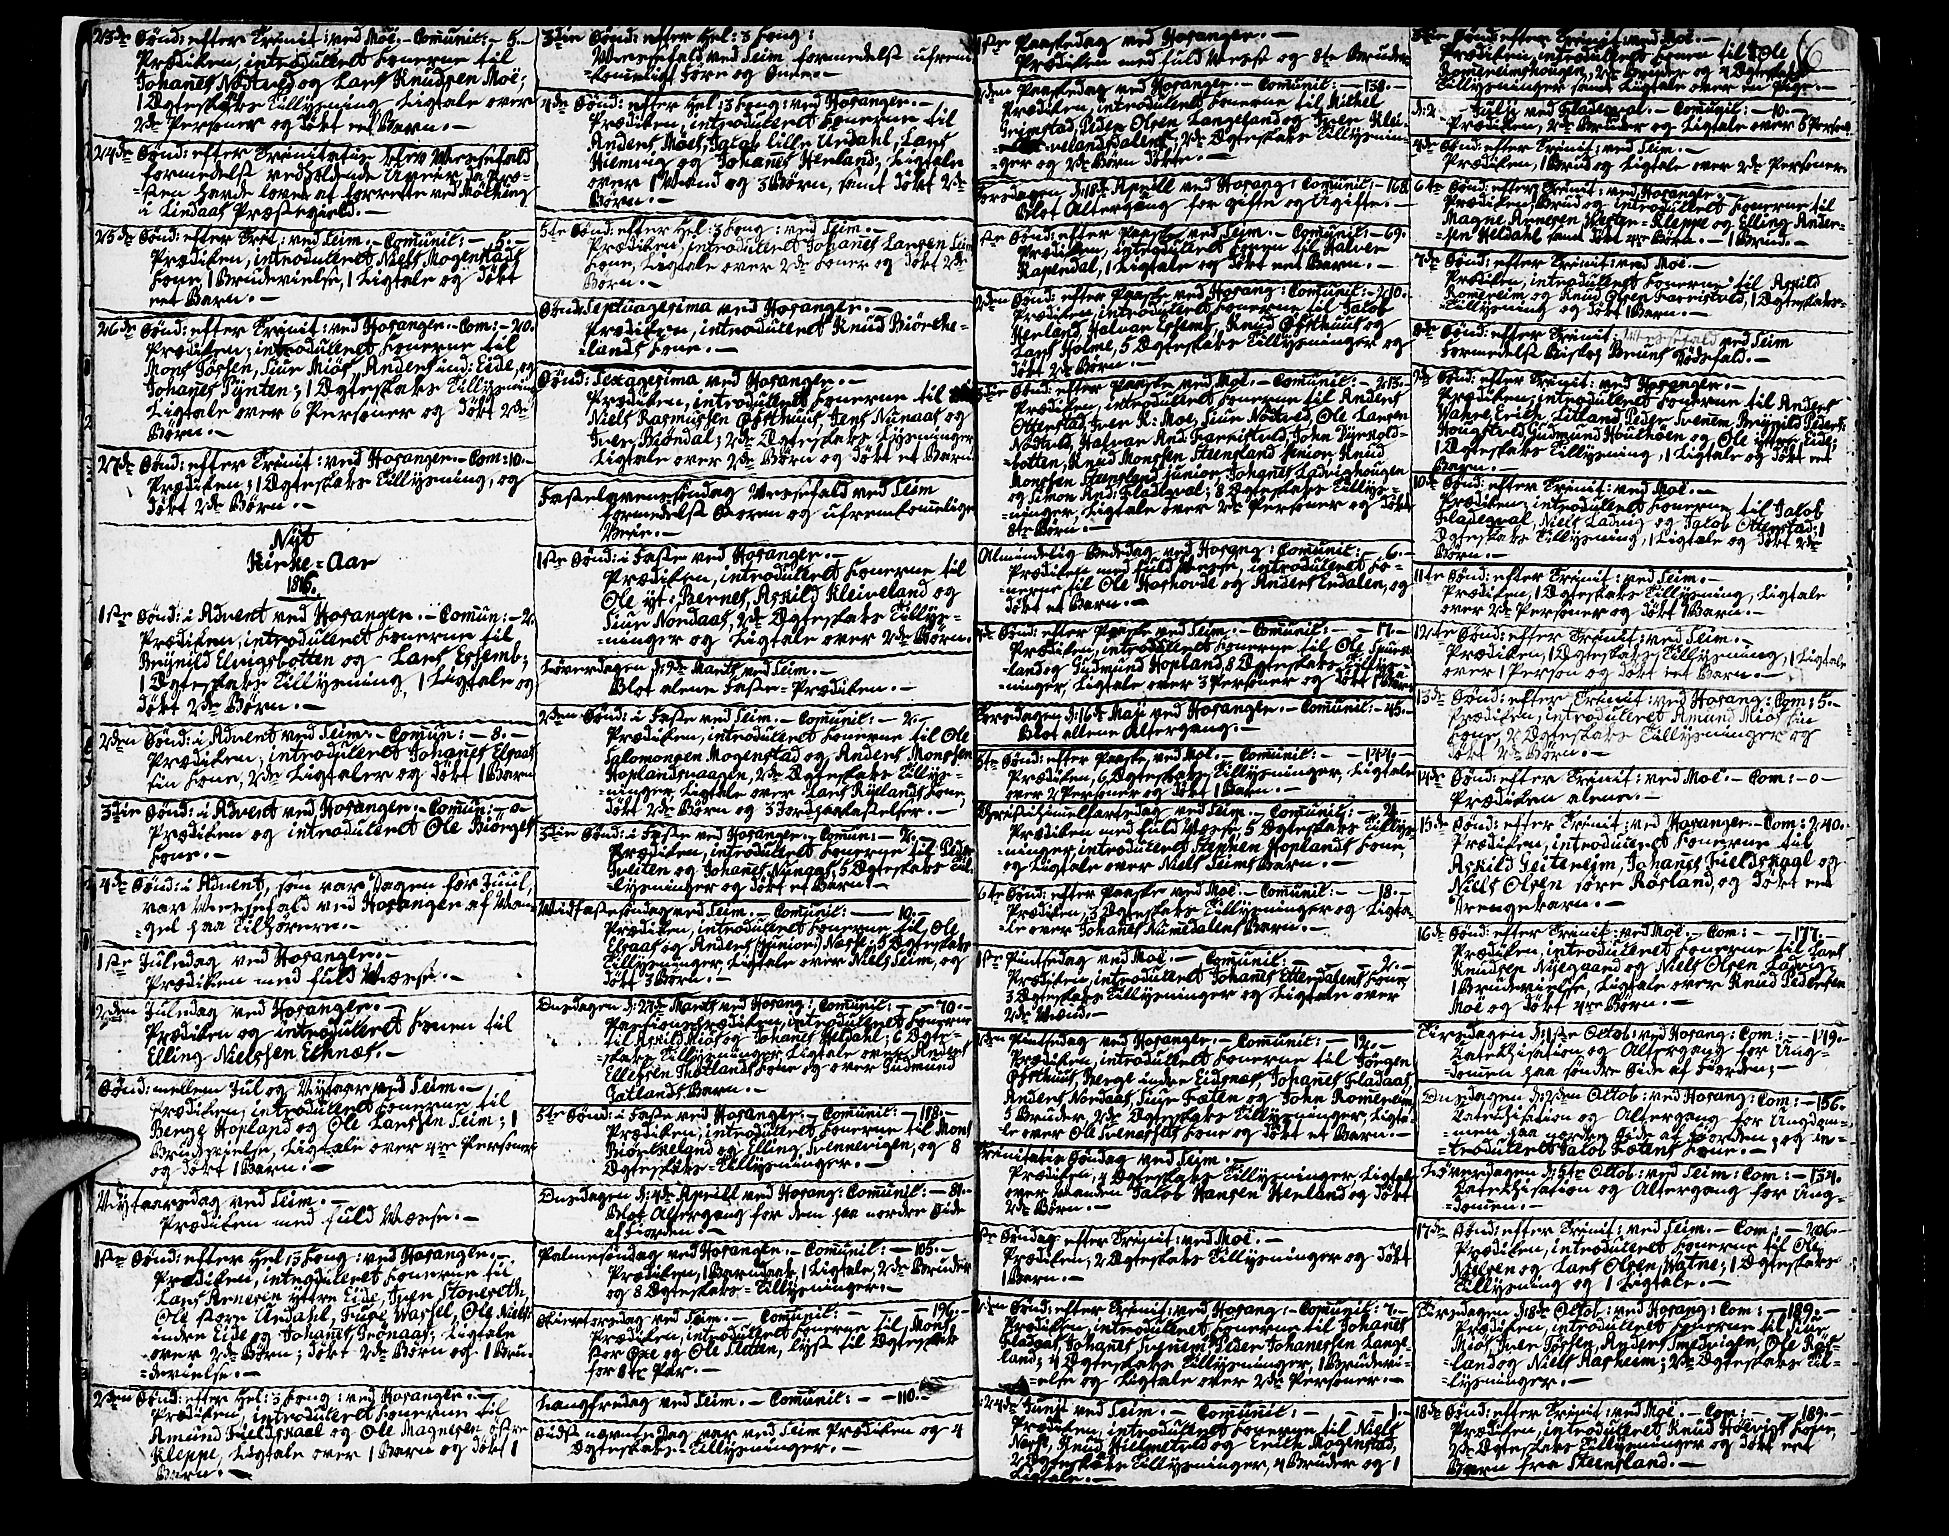 23de Sønd: efter Trinit: ved Moe. Comunic: - 5.-
Prædiken, introduceret Konerne til
Johanes Nøstvid og Lars Knudsen Moe;
1 Ægteskabs Tillysning Ligtale over
2de Personer og døbt eet Barn.-
24de Sønd: efter Trinitatis blev Messefald
formedelst vedholdende Uveir da Pro-
=sten havde lovet at forrette ved Molhing
i Lindaas Præstegield.-
25de Sønd: efter Trit: ved Seim.- Comunic: - 5.-
Prædiken, introduceret Niels Mogenstads
Kone, 1 Brudevielse, 1 Ligtale og døbt
eet Barn.-
26de Sønd: efter Trinit: ved Hosanger.- Com: - 20.
Prædiken; introduceret Konerne til
Mons Jössen, Siur Miös, Anders ind: Eide, og
Johanes Tynten; 1 Ægteskabs Tillysning
Ligtale over 6 Personer og døbt 2de
Børn.-
27de Sønd: efter Trinit: ved Hosanger.- Com: 10.-
Prædiken; 1 Ægteskabs Tillysning, og
døbt 2de Børn.-
Nyt
Kirke=Aar
1816.
1ste Sønd: i Advent ved Hosanger.- Comun: - 2.
Prædiken, introduceret Konerne til
Brynild Elvigsbotten og Lars Essemb;
1 Ægteskabs Tillysning, 1 Ligtale og
døbt 2de Børn.-
2den Sønd: i Advent ved Seim.- Comun: - 8.-
Prædiken; introduceret Johanes Elsaas
sin Kone, 2de Ligtaler og døbt 1 Barn
3die Sønd: i Advent ved Hosanger.- Comun: - o -
Prædiken og introduceret Ole Biørges
Kone.-
4de Sønd: i Advent, som var Dagen før Juul,
var Messefald ved Hosanger af Man-
=gel paa Tilhørere.-
1ste Juledag ved Hosanger.-
Prædiken med fuld Messe.-
2den Juledag ved Hosanger.-
Prædiken og introduceret Konen til
Elling Nielssen Eknæs.-
Sønd: mellem Jul og Nytaar ved Seim.-
Prædiken, introduceret Konerne til
Berge Hopland og Ole Larssen Seim; 1
Brudevielse, Ligtale over 4re Personer
og døbt 1 Barn.-
Nytaarsdag ved Seim.-
Prædiken med fuld Messe.-
1ste Sønd: efter Hel: 3 Kong: ved Hosanger.-
Prædiken, introduceret Konerne til
Lars Arnesen yttre Eide, Iver
Ole store Undahl, Ole Niels:
indre Eide og Johanes Tronaas; Ligtale
over 2de Børn; døbt 2de Børn og 1 Bru-
=devielse.-
2den Sønd: efter Hel: 3 Kong: ved Hosanger.-
Prædiken, introduceret Konerne til
Amund Fieldskaal og Ole Magnesen østre
Kleppe, Ligtale over 1 Barn og døbt 1
Barn.-
3die Sønd: efter Hel: 3 Kong:
Messefald ved Seim formedelst ufrem-
=kommeligt Føre og Onde.-
4de Sønd: efter Hel: 3 Kong: ved Hosanger.-
Prædiken, introduceret Konerne til
Anders Moes, Jacob Lille Undahl, Lars
Hieming og Johanes Henland; Ligtale
over 1 Mand og 3 Børn, samt døbt 2de
Børn.-
5te Sønd: efter Hel: 3 Kong: ved Seim.-
Prædiken, introduceret Johanes Larsen Seim
Kone, Ligtale over 2de Koner og døbt 2de
Børn.-
Sønd: Septuagesima ved Hosanger.-
Prædiken, introduceret Knud Biörke-
=lands Kone.-
Sønd: Sexagesima ved Hosanger.-
Prædiken, introduceret Konerne til
Niels Rasmussen Øfsthuus, Jens Nunaas og
Iver Biøndal; 2de Ægteskabs Lysninger
Ligtale over 2de Børn og døbt et Barn.
Fastelavenssøndag Messefald ved Seim
formedelst Storm og ufremkommelige
Veie.-
1ste Sønd: i Faste ved Hosanger.-
Prædiken, introduceret Konerne til
Ole yt: Bernes, Askild Kleiveland og
Siur Nordaas, 2de Ægteskabs Tillys-
=ninger og Ligtale over 2de Børn.
Løverdagen d: 9de Marts ved Seim.-
Blot alene Faste=Prædiken.-
2den Sønd: i Faste ved Seim.- Comunic: - 2.-
Prædiken, introduceret Konerne til Ole
Salomonsen Mogenstad og Anders Monssen
Hoplandsvaagen, 2de Ægteskabs Tillys-
=ninger, Ligtale over Lars Rylands Kone,
døbt 2de Børn og 3 Jordpaakastelser.-
3die Sønd: i Faste ved Hosanger.- Comun: - 2.-
Prædiken, introduceret Konerne til Peder
Tveiten og Johanes Nunaas; 5 Ægteskabs Til-
=lysninger og døbt et Barn.-
Midfastesøndag ved Seim.- Comunic: - 10.-
Prædiken, introduceret Konerne til Ole
Elsaas og Anders (junior) Nasse; 5 Ægteskabs
Tillysninger, Ligtale over Niels Seim, og
døbt 3 Børn.-
Onsdagen d: 27de Marts ved Hosang: Comunic: - 70.-
Passionsprædiken, introduceret Konerne
til Askild Miös og Johanes Heldahl; 6 Ægte-
=skabs Tillysninger, Ligtale over Anders
Ellefsen Kone og over Gudmund
Gatlands Barn.-
5te Sønd: i Faste ved Hosanger.- Comunic: - 118.-
Prædiken; introduceret Konerne til Mons
Biørkeland og Elling Svennevigen, og 8
Ægteskabs=Tillysninger.-
Onsdagen d: 4de Aprill ved Hosang: Comunic: - 81.-
Blot Altergang for dem paa nordre Side
af Fiorden.-
Palmesøndag ved Hosanger.- Comunic: - 105.-
Prædiken, 1 Barndaab, 1 Ligtale, 2de Bruder
og 8 Ægteskabs=Tillysninger.-
Skiertorsdag ved Seim.- Comunic: - 196.-
Prædiken, introduceret Konerne til Mons
stor Oxe og Ole Sletten, lyst til Ægteskab
for 8te Par.-
Langfredag ved Seim.- Comunic: - 110.-
Sidst nævnte Dag var ved Seim Prædiken og 4
Ægteskabs=Tillysninger.-
1ste Paaskedag ved Hosanger.-
Prædiken med fuld Messe og 8te Bruder
2den Paaskedag ved Hosanger.- Comunic: - 138.-
Prædiken, introduceret Konerne til Mikkel
Grimstad, Peder Olsen Langeland og Iver Klei-
=velandsdalens, 2de Ægteskabs Tillysnin-
=ger og 2de Børn døbte.-
Torsdagen d: 18de Aprill ved Hosang: Comunic: - 168.
Blot Altergang for gifte og Ugifte.-
1ste Sønd: efter Paaske ved Seim.- Comunic: - 69.
Prædiken, introduceret Konen til Halver
Rapendal, 1 Ligtale og døbt eet Barn.-
2den Sønd: efter Paaske ved Hosang: Comunic: - 210.-
Prædiken, introduceret Konerne til Jacob
Henland, Halvor Essemb, Knud Øfsthuus og
Lars Holme, 5 Ægteskabs Tillysninger og
døbt 2de Børn.-
3die Sønd: efter Paaske ved Moe.- Comunic: - 213.-
Prædiken, introduceret Konerne til Anders
Ottestad, Iver K: Moe, Siur Nøstved, Ole Larsen
Nøstvld, Halvor And: Farristvld, John Dyrkold-
=botten, Knud Monssen Steensland senior, Knud
Monssen Steensland junior, Johanes Ladvighougen
og Simon And: Fladeqval; 8 Ægteskabs Tillys-
=ninger, Ligtale over 2de Personer og døbt
8te Børn.-
Almindelig Bededag ved Hosang: Comunic: - 6.-
Prædiken med fuld Messe, introduceret Ko-
=nerne til Ole Haskovde og Anders Ledalen, og
døbt et Barn.-
4de Sønd: efter Paaske ved Seim.- Comunic: - 17.-
Prædiken, introduceret Konerne til Ole Spure-
=land og Gudmund Hopland, 8 Ægteskabs Tillys-
=ninger, Ligtale over 3 Personer og døbt 1 Barn
Torsdagen d: 16de Maji ved Hosanger.- Comunic: - 45.-
Blot allene Altergang.-
5te Sønd: efter Paaske ved Moe.- Comunic: - 144.-
Prædiken, 6 Ægteskabs Tillysninger, Ligtale
over 2 Personer og døbt 1 Barn.-
Christihimmelfartsdag ved Seim.- Comunic: - 21.-
Prædiken med fuld Messe, 5 Ægteskabs Tillys-
=ninger, introduceret Stephen Hoplands Kone,
og Ligtale over Niels Seims Barn.-
6te Sønd: efter Paaske ved Moe.- Comunic: - 18.-
Prædiken, 3 Ægteskabs Tillysninger og Ligta-
=le over Johanes Numedalens Barn.-
1ste Pintsedag ved Moe.- Comunic: - 2.-
Prædiken, introduceret Johanes Etterdalens Kone,
3 Ægteskabs Tillysninger og Ligtale over
2de Mænd.-
2den Pintsedag ved Hosanger.- Comunic: - 12.-
Prædiken, introduceret Konerne til Jörgen
Øfsthuus, Berge indre Eidsnæs, Johanes Fladaas,
Anders Nordaas, Siur Fæten og John Romereim,
5 Bruder, 2de Ægteskabs Tillysninger, Ligta-
=le over Ole Kone og døbt et Barn.-
Trinitatis Søndag ved Seim.-
Prædiken, 4 Ægteskabs Tillysninger, Ligtale
over Manden Jacob Hansen Henland og døbt
2de Børn.-
1ste Søndag efter Trinit: ved Moe.-
Prædiken, 2 Ægteskabs Tillysninger og døbt
1 Barn.-
2den Sønd: efter Trinit: ved Hosang:- Comunic: 7.-
Prædiken, introduceret Konerne til Johanes
Fladqval, Johanes Tvenem, Peder Johanessen Lange-
=land; 4 Ægteskabs Tillysninger, 1 Brudevi-
=else og Ligtale over 2de Personer.-
d: 24de Junii ved Seim.- Comunic: - 1.-
Prædiken, introduceret Konerne til Niels
Nasse, Knud Hielmtveld og Erich Mogenstad,
2 Ægteskabs Tillysninger, 4 Bruder og 1
Ligtale.-
3die Sønd: efter Trinit: ved Moe.-
Prædiken, introduceret Konen til Ole
Romereimshougen, 2de Bruder og 4 Ægteskabs
Tillysninger samt Ligtale over en Pige.-
66
d: 2 July ved Fladeqval.- Comunic: - 10.-
Prædiken, 2de Bruder og Ligtale over 5 Person
4de Sønd: efter Trinit: ved Seim.-
Prædiken, 1 Brud og Ligtale over 2de Personer
6te Sønd: efter Trinit: ved Hosanger.-
Prædiken, Brud og introduceret Konerne til
Magne Arnesen Vester=Kleppe og Elling Ander-
=sen Heldahl samt døbt 4re Børn.- 1 Brud.-
7de Sønd: efter Trinit: ved Moe.-
Prædiken, introduceret Konerne til Askild
Romereim og Knud Olsen Farristvld, 1 Ægteskabs-
=Tillysning og døbt 1 Barn.-
8de Sønd: efter Trinit: Messefald ved Seim
formedelst Biskop Bruns Dødsfald.-
9de Sønd: efter Trinit: ved Hosanger.-
Prædiken, introduceret Konerne til Anders
Vahre, Erich Litland, Peder Tvenem, Brynild Peders:
Hougstvld, Gudmund Houkoen og Ole yttre Eide;
1 Ægteskabs Tillysning, 1 Ligtale og døbt eet
Barn.-
10de Sønd: efter Trinit: ved Moe.-
Prædiken, introduceret Konerne til Jacob
Fladeqval, Niels Ladvig og Jacob Ottestad; 1
Ægteskabs Tillysning, 1 Ligtale og døbt 2de
Børn.-
11te Sønd: efter Trinit: ved Seim.-
Prædiken, 1 Ægteskabs Tillysning, Ligtale
over 2de Personer og døbt 1 Barn.-
12te Sønd: efter Trinit: ved Seim.-
Prædiken, 1 Ægteskabs Tillysning, 1 Ligtale
over 1 Person og døbt eet Barn.-
13de Sønd: efter Trinit: ved Hosang: Com: 5.-
Prædiken, introduceret Amund Miös sin
Kone, 2 Ægteskabs Tillysninger og
døbt 2de Børn.-
14de Sønd: efter Trinit: ved Moe.- Com: - o -
Prædiken alene.-
15de Sønd: efter Trinit: ved Hosanger.- Com: 240.-
Prædiken, introduceret Konerne til
Askild Leitereim, Johanes Fieldskaal og
Niels Olsen søre Røsland, og døbt eet
Drengebarn.-
16de Sønd: efter Trinit: ved Moe.- Com: - 177.-
Prædiken, introduceret Konerne til Lars
Knudsen Nyegaard og Niels Olsen Ladvig,
1 Brudevielse, Ligtale over Knud Pedersen
Moe og døbt 4re Børn.-
Tirsdagen d: 1ste Octob: ved Hosang: Com: - 149.-
Catechisation og Altergang for Ung-
=dommen paa søndre Side af Fiorden;-
Onsdagen d: 2den Octob: ved Hosang: Com: - 156.
Catechisation og Altergang for Ungdom-
=men paa nordre Side af Fiorden; og in-
=troduceret Jacob Fætens Kone.-
Løverdagen d: 5te Octob: ved Seim: Com: - 134.
Catechisation og Altergang for Ung-
=dommen.-
17de Sønd: efter Trinit: ved Seim.- Com: - 206.-
Prædiken, introduceret Konerne til Ole
Nielsen og Lars Olsen Vatne; 1 Ægteskabs
Tillysning og 1 Ligtale.-
Tirsdagen d: 8de Octob: ved Hosang: Com: - 189.-
Prædiken, introduceret Konerne til Siur
Miös, Iver Fossen, Anders Smedvigen, Ole Røs-
=land og Niels Aasheim; 2de Ægteskabs Til-
=lysninger.-
18de Sønd: efter Trinit: ved Moe.- Com: - 189.-
Prædiken, introduceret Knud Holvigs Kone,
2de Ægteskabs Tillysninger og døbt eet
Barn fra Steensland.-